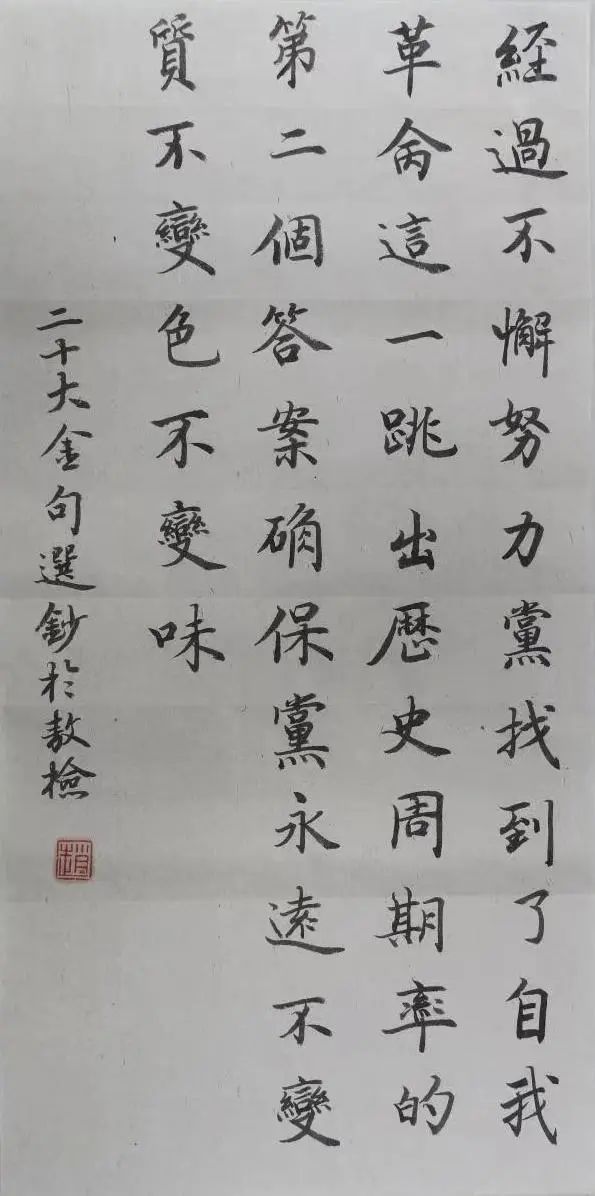 經過不懈努力黨找到了自我
革命這一跳出歷史周期率的
第二個答案确保黨永遠不變
質不變色不變味
二十大金句選鈔於敖檢
趙